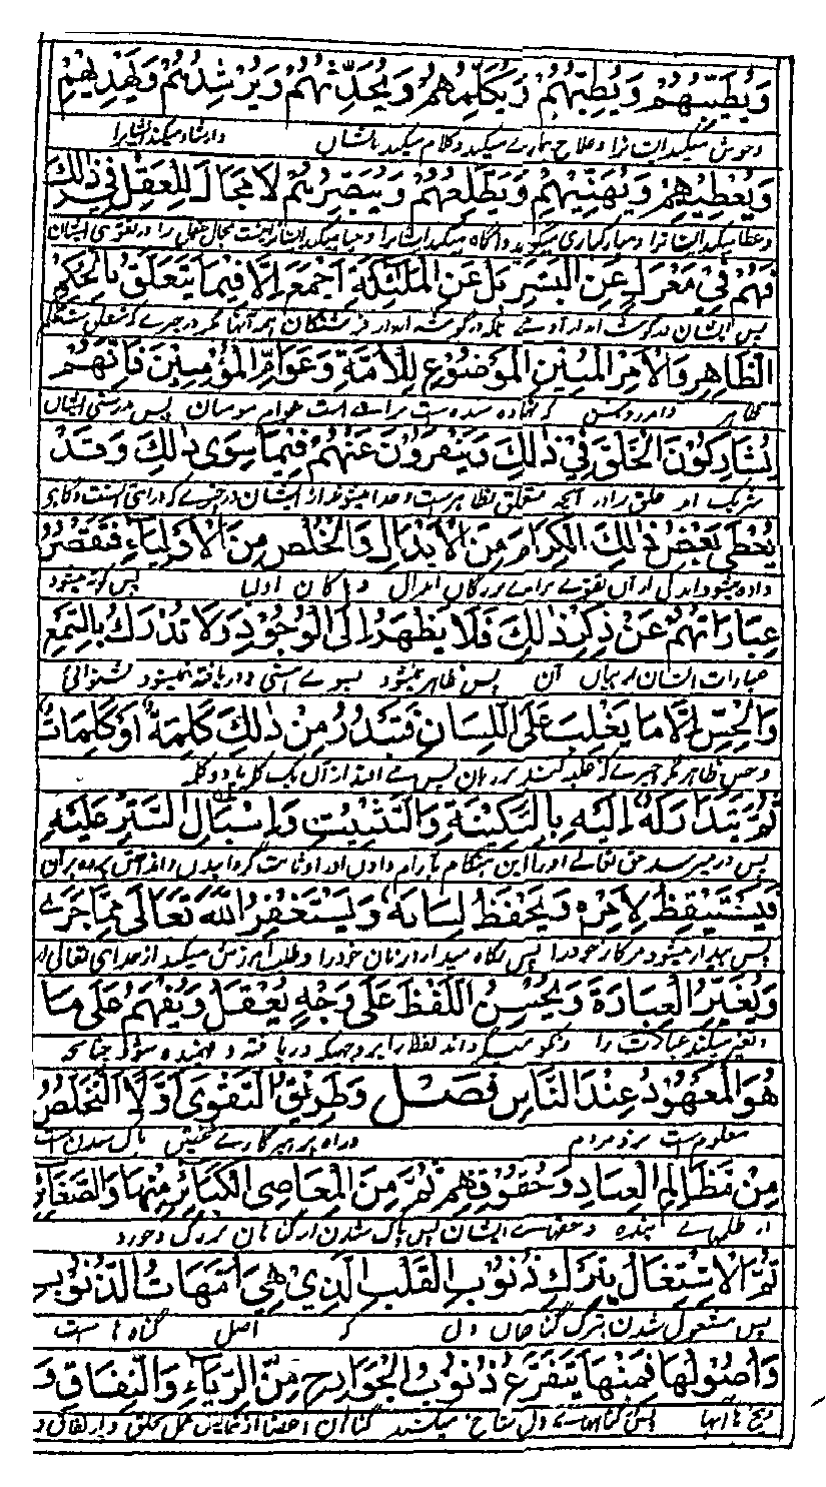 وَيُطَيِّبُهُمْ وَيُطِبُّهُمْ وَيُكَلِّمُهُمْ وَيُحَدِّثُهُمْ وَيُرْشِدُهُمْ وَيَهْدِيهِمْ
وخوش میکند ایشانرا وعلاج بیماری میکند وکلام میکند بایشان وارشاد میکند ایشانرا
وَيُعْطِيهِمْ وَيُهَنِّيهِمْ وَيُطْلِعُهُمْ وَيُبَصِّرُهُمْ لَا مَجَالَ لِلْعَقْلِ فِي ذٰلِكَ
وعطا میکند ایشانرا ومبارکبادی میگوید واگاه میکند ایشانرا وبینا میکند ایشانرا نیست مجال عقل را در
فَهُمْ فِي مَعْزِلٍ عَنِ الْبَشَرِ بَلْ عَنِ الْمَلٰئِكَةِ اَجْمَعَ اِلَّا فِيمَا يَتَعَلَّقُ بِالْحُكْمِ
پس ایشان در گوشه اند از آدمی بلکه در گوشه اند از فرشتگان همه آنها مگر در چیزے که متعلق
الظَّاهِرِ وَالْاَمْرِ الْمُبِينِ الْمَوْضُوعِ لِلْاُمَّةِ وَعَوَامِّ الْمُؤْمِنِينَ فَاِنَّهُمْ
ظاهر وامر روشن که نهاده شده است براے امت عوام مومنان پس بدرستی ایشان
يُشَارِكُونَ الْخَلْقَ فِي ذٰلِكَ وَيَنْفَرِدُونَ عَنْهُمْ فِيمَا سِوَى ذٰلِكَ وَقَدْ
شریک اند خلق را در آنچه متعلق بظاهر است وجدا میشوند از ایشان در چیزے که
يُعْطَى بَعْضُ ذٰلِكَ الْكِرَامَ مِنَ الْاَبْدَالِ وَالْخُلَّصِ مِنَ الْاَوْلِيَاءِ فَتَقْصُرُ
داده میشود اندکی از آن براے بزرگان ابدال و پاکان اولیا پس کوته میشود
عِبَارَاتُهُمْ عَنْ ذِكْرِ ذٰلِكَ فَلَا يَظْهَرُ اِلَى الْوُجُودِ وَلَا تُدْرَكُ بِالسَّمْعِ
عبارات ایشان از بیان آن پس ظاهر نمیشود بسوے هستی ودریافته نمیشود بشنوائی
وَالْحِسِّ اِلَّا مَا يَغْلِبُ عَلَى اللِّسَانِ فَتَبْدُرُ مِنْ ذٰلِكَ كَلِمَةٌ اَوْ كَلِمَاتٌ
وحس ظاهر مگر چیزے که غلبه کند بر زبان پس مے افتد از آن یک کلمه یا دو کلمه
ثُمَّ يَتَدَارَكُهُ اِلَيْهِ بِالتَّسْكِينَةِ وَالتَّثْبِيتِ وَاِسْبَالِ السَّتْرِ عَلَيْهِ
پس در میرسد حق تعالے اورا این هنگام بآرام دادن او وثابت گردانیدن
فَيَسْتَيْقِظُ لِاَمْرِهٖ وَيَحْفَظُ لِسَانَهُ وَيَسْتَغْفِرُ اللّٰهَ تَعَالَى مِمَّا جَرٰى
پس بیدار میشود مر کار خودرا پس نگاه میدارد زبان خودرا وطلب آمرزش میکند از خدای تعالی از
وَيُغَيِّرُ الْعِبَادَةَ وَيُحْسِنُ اللَّفْظَ عَلَى وَجْهٍ يُعْقَلُ وَيُفْهَمُ عَلَى مَا
وتغیر میکند عبادت را ونیکو میگرداند لفظ را بر وجهیکه دریافته و فهمیده میشود چنانچه
هُوَ الْمَعْهُودُ عِنْدَ النَّاسِ فَصْلٌ وَطَرِيقُ التَّقْوَى اَوَّلًا التَّخَلُّصُ
معلوم است نزد مردم وراه پرهیزگارے نخستین پاک شدن است
مِنْ مَظَالِمِ الْعِبَادِ وَحُقُوقِهِمْ ثُمَّ مِنَ الْمَعَاصِي الْكَبَائِرِ مِنْهَا وَالصَّغَائِرِ
از ظلمهاے بنده وحقهاے ایشان پس پاک شدن از گناهان بزرگ وخورد
ثُمَّ الْاِشْتِغَالُ بِتَرْكِ ذُنُوبِ الْقَلْبِ الَّذِي هِيَ اُمَّهَاتُ الذُّنُوبِ
پس مشغول شدن بترک گناهان دل که اصل گناه ها ست
وَاُصُولُهَا فَمِنْهَا يَتَفَرَّعُ ذُنُوبُ الْجَوَارِحِ مِنَ الرِّيَاءِ وَالنِّفَاقِ وَ
وبیخ هاے آنها پس گناههاے دل شاخ میکشند گناهان اعضا از